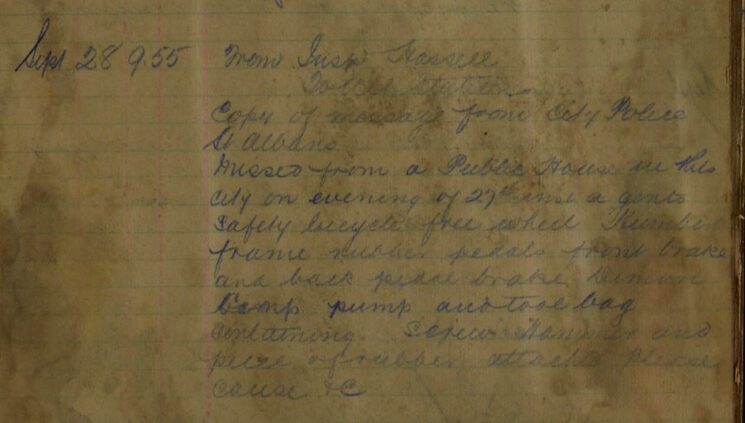 Sept 28 9.55 From Insp Hassell
Police Station
Copy of message from City Police
St Albans
Missed from a Public House in this
City on evening of 27th inst a gents
Safety bicycle free wheel Humber
frame rubber pedals front brake
and back pedal brake
Lamp pump and tool bag
Containing Screw Hammer and
piece of rubber attached Please
cause &C